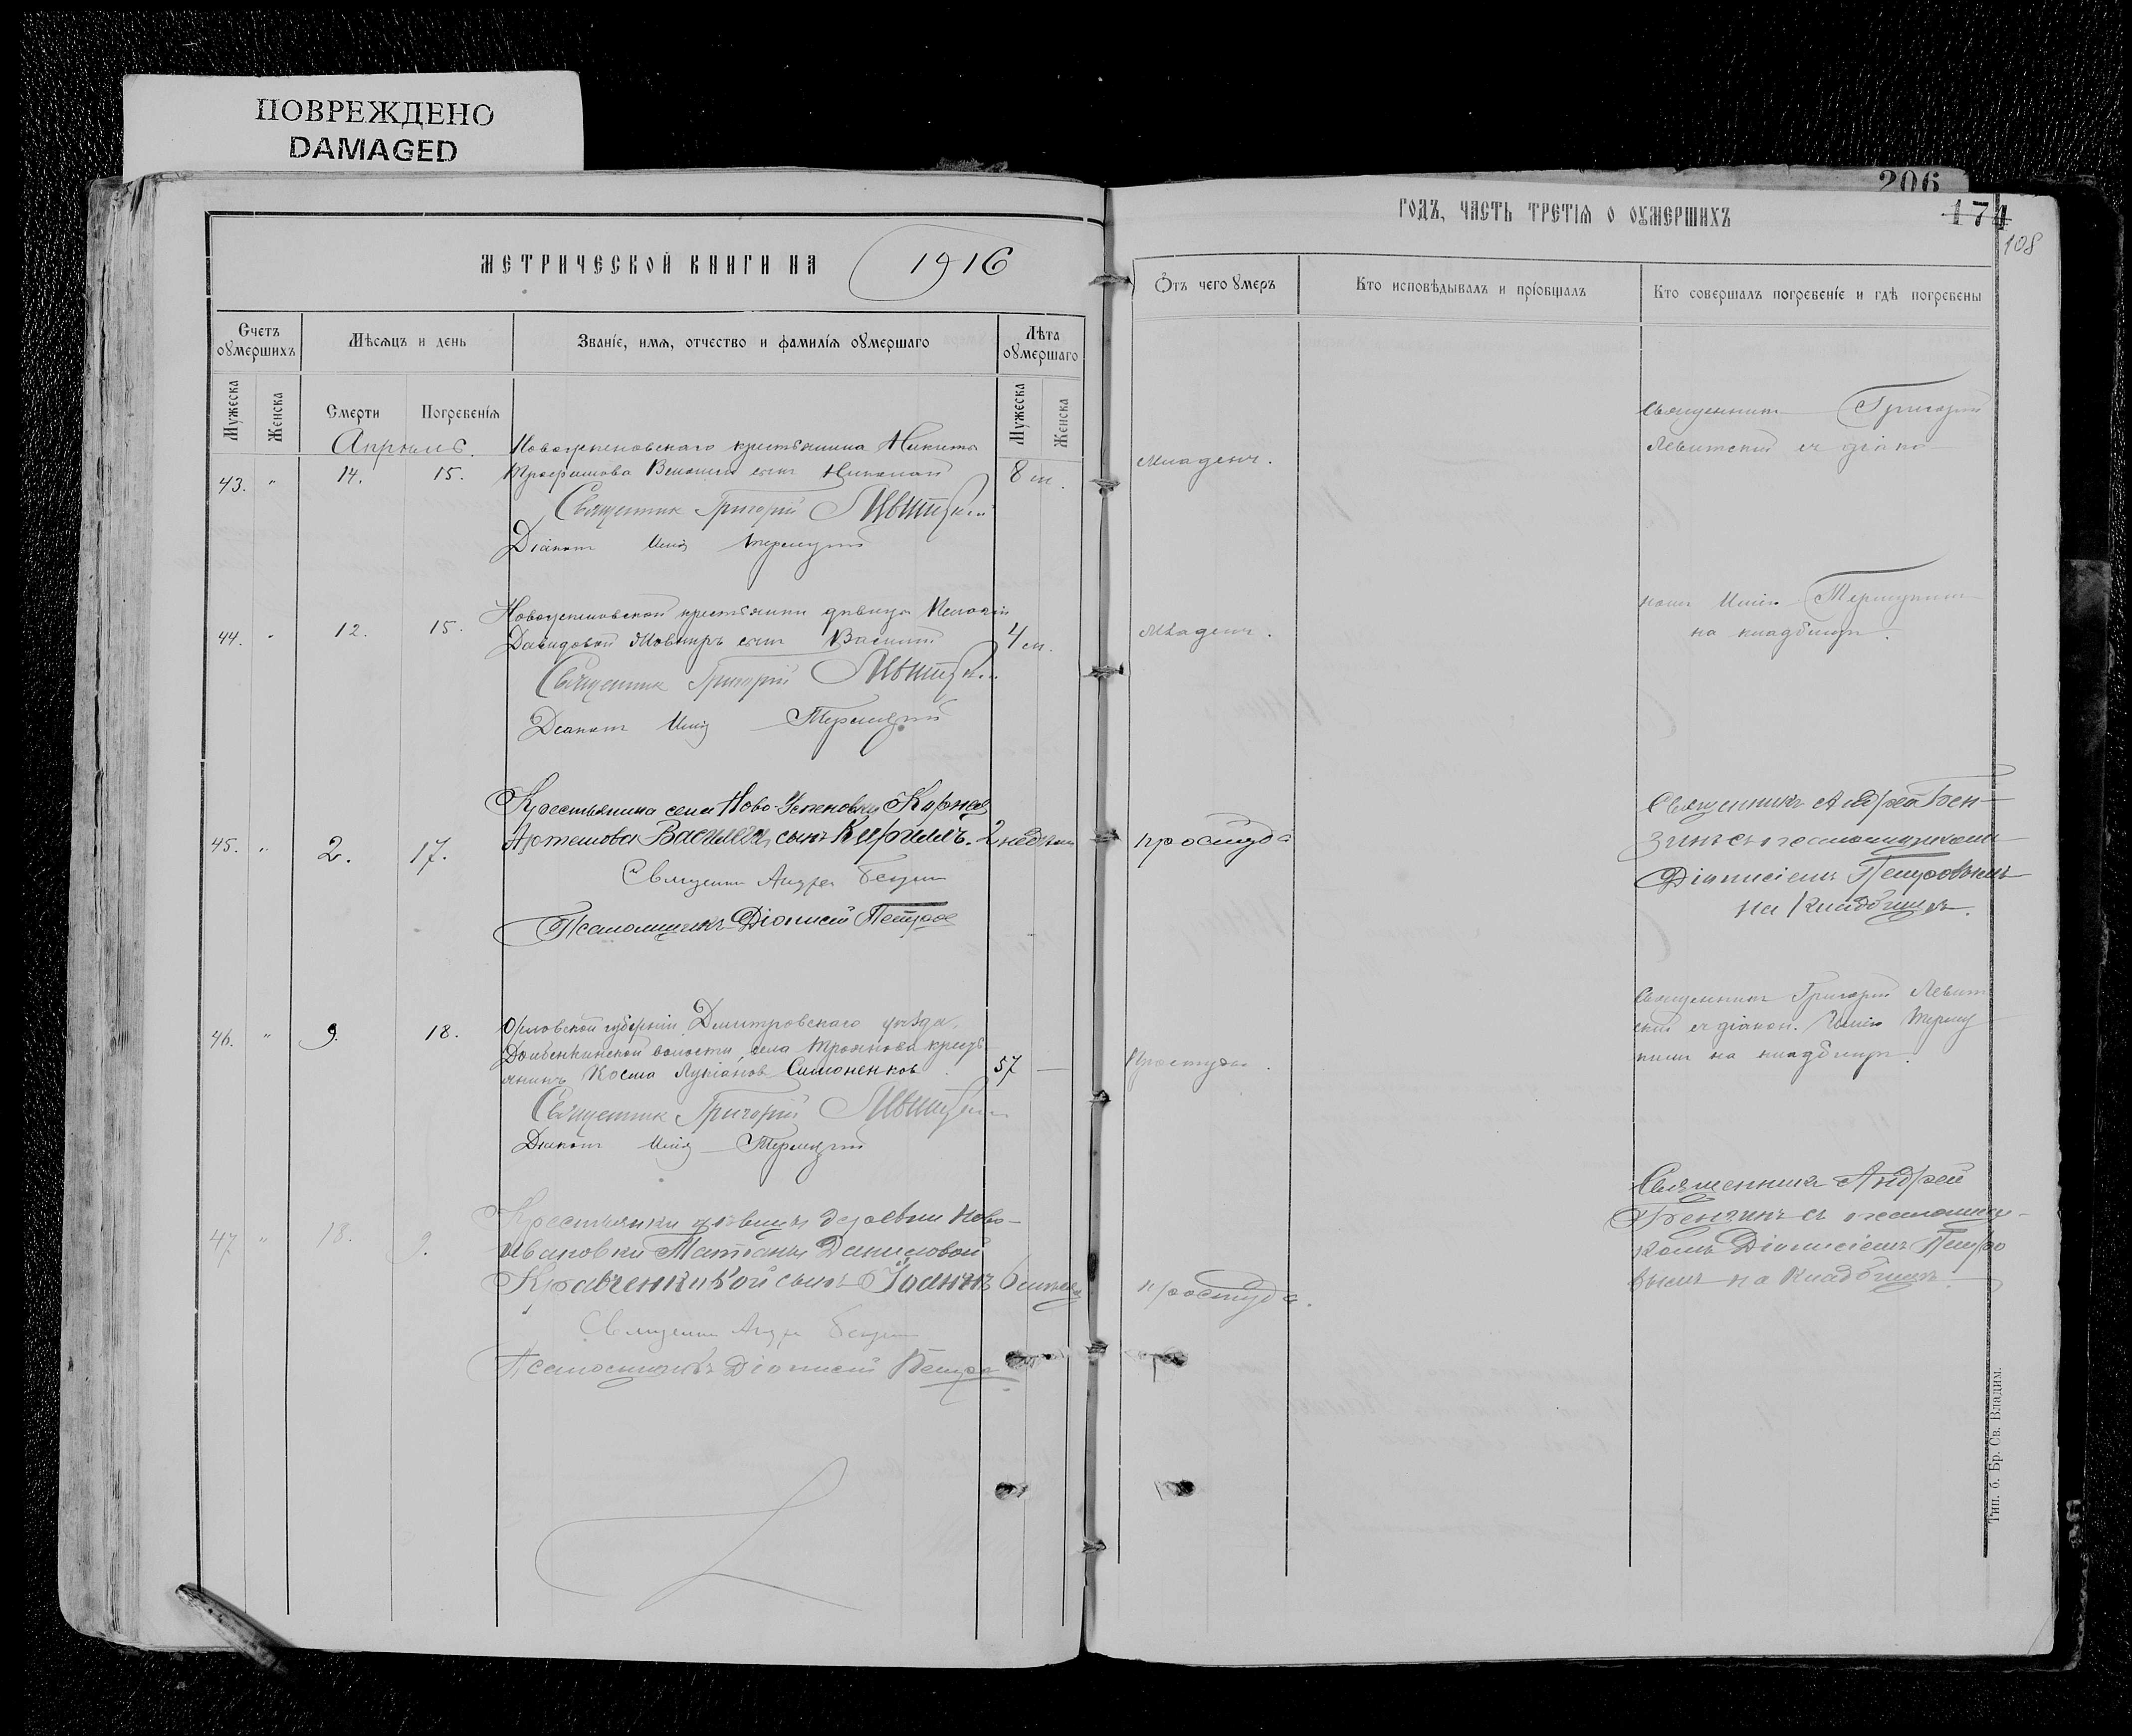 ПОВРЕЖДЕНО
DAMAGED
206
МЕТРИЧЕСКОЙ КНИГИ НА 1916
ГОДЪ, ЧАСТЬ ТРЕТІѦ О ОУМЕРШИХЪ
174
108
Счетъ оумершихъ
Мѣсѧцъ и день
Званіе, имѧ, отчество и фамиліѧ оумершаго
Лѣта оумершаго
Мужеска
Женска
Смерти
Погребеніѧ
Мужеска
Женска
Отъ чего умеръ
Кто исповѣдывалъ и пріобщалъ
Кто совершалъ погребеніе и гдѣ погребены
Апрель.
43. " 14. 15.
Новоуспеновскаго крестьянина Никиты
Трофимова сынъ Николай
8 м.
Священник Григорий Левитский
Діаконъ Илія Терлецкий
Младенч.
Священникъ Григорий
Левитский съ діако
44. " 12. 15.
Новоуспеновской крестьянки девицы
Давидовой сынъ Василий
4 м.
Священник Григорий Левитский
Діаконъ Илія Терлецкий
Младенч.
номъ Иліею Терлецкимъ
на кладбище.
45. " 2. 17.
Крестьянина села Ново-Успеновки Корнея
Артемова Василега сынъ Кириллъ.
2 недели
Священник Андрей Бензин
Псаломщикъ Діонисій Петров
простуда
Священникъ Андрей Бен-
зинъ съ псаломщикомъ
Діонисіемъ Петровымъ
на кладбищѣ.
46. " 9. 18.
Орловской губерніи Дмитровскаго уѣзда,
волости, села кресть
янинъ Косма Лукіанов Симоненков
57 —
Священник Григорий Левитский
Діаконъ Илія Терлецкий
Простуда.
Священникъ Григорій Левит
ский съ діакон. Иліею Терлец
кимъ на кладбищѣ.
47 " 18. 9.
Крестьянки дѣвицы деревни Ново-
ивановки Татіаны Даниловой
сынъ Іоаннъ
Священник Андрей Бензин
Псаломщикъ Діонисій Петров
простуда.
Священникъ Андрей
Бензинъ съ псаломщи-
комъ Діонисіемъ Петро
вымъ на кладбищѣ.
Тип. б. Бр. Св. Владим.